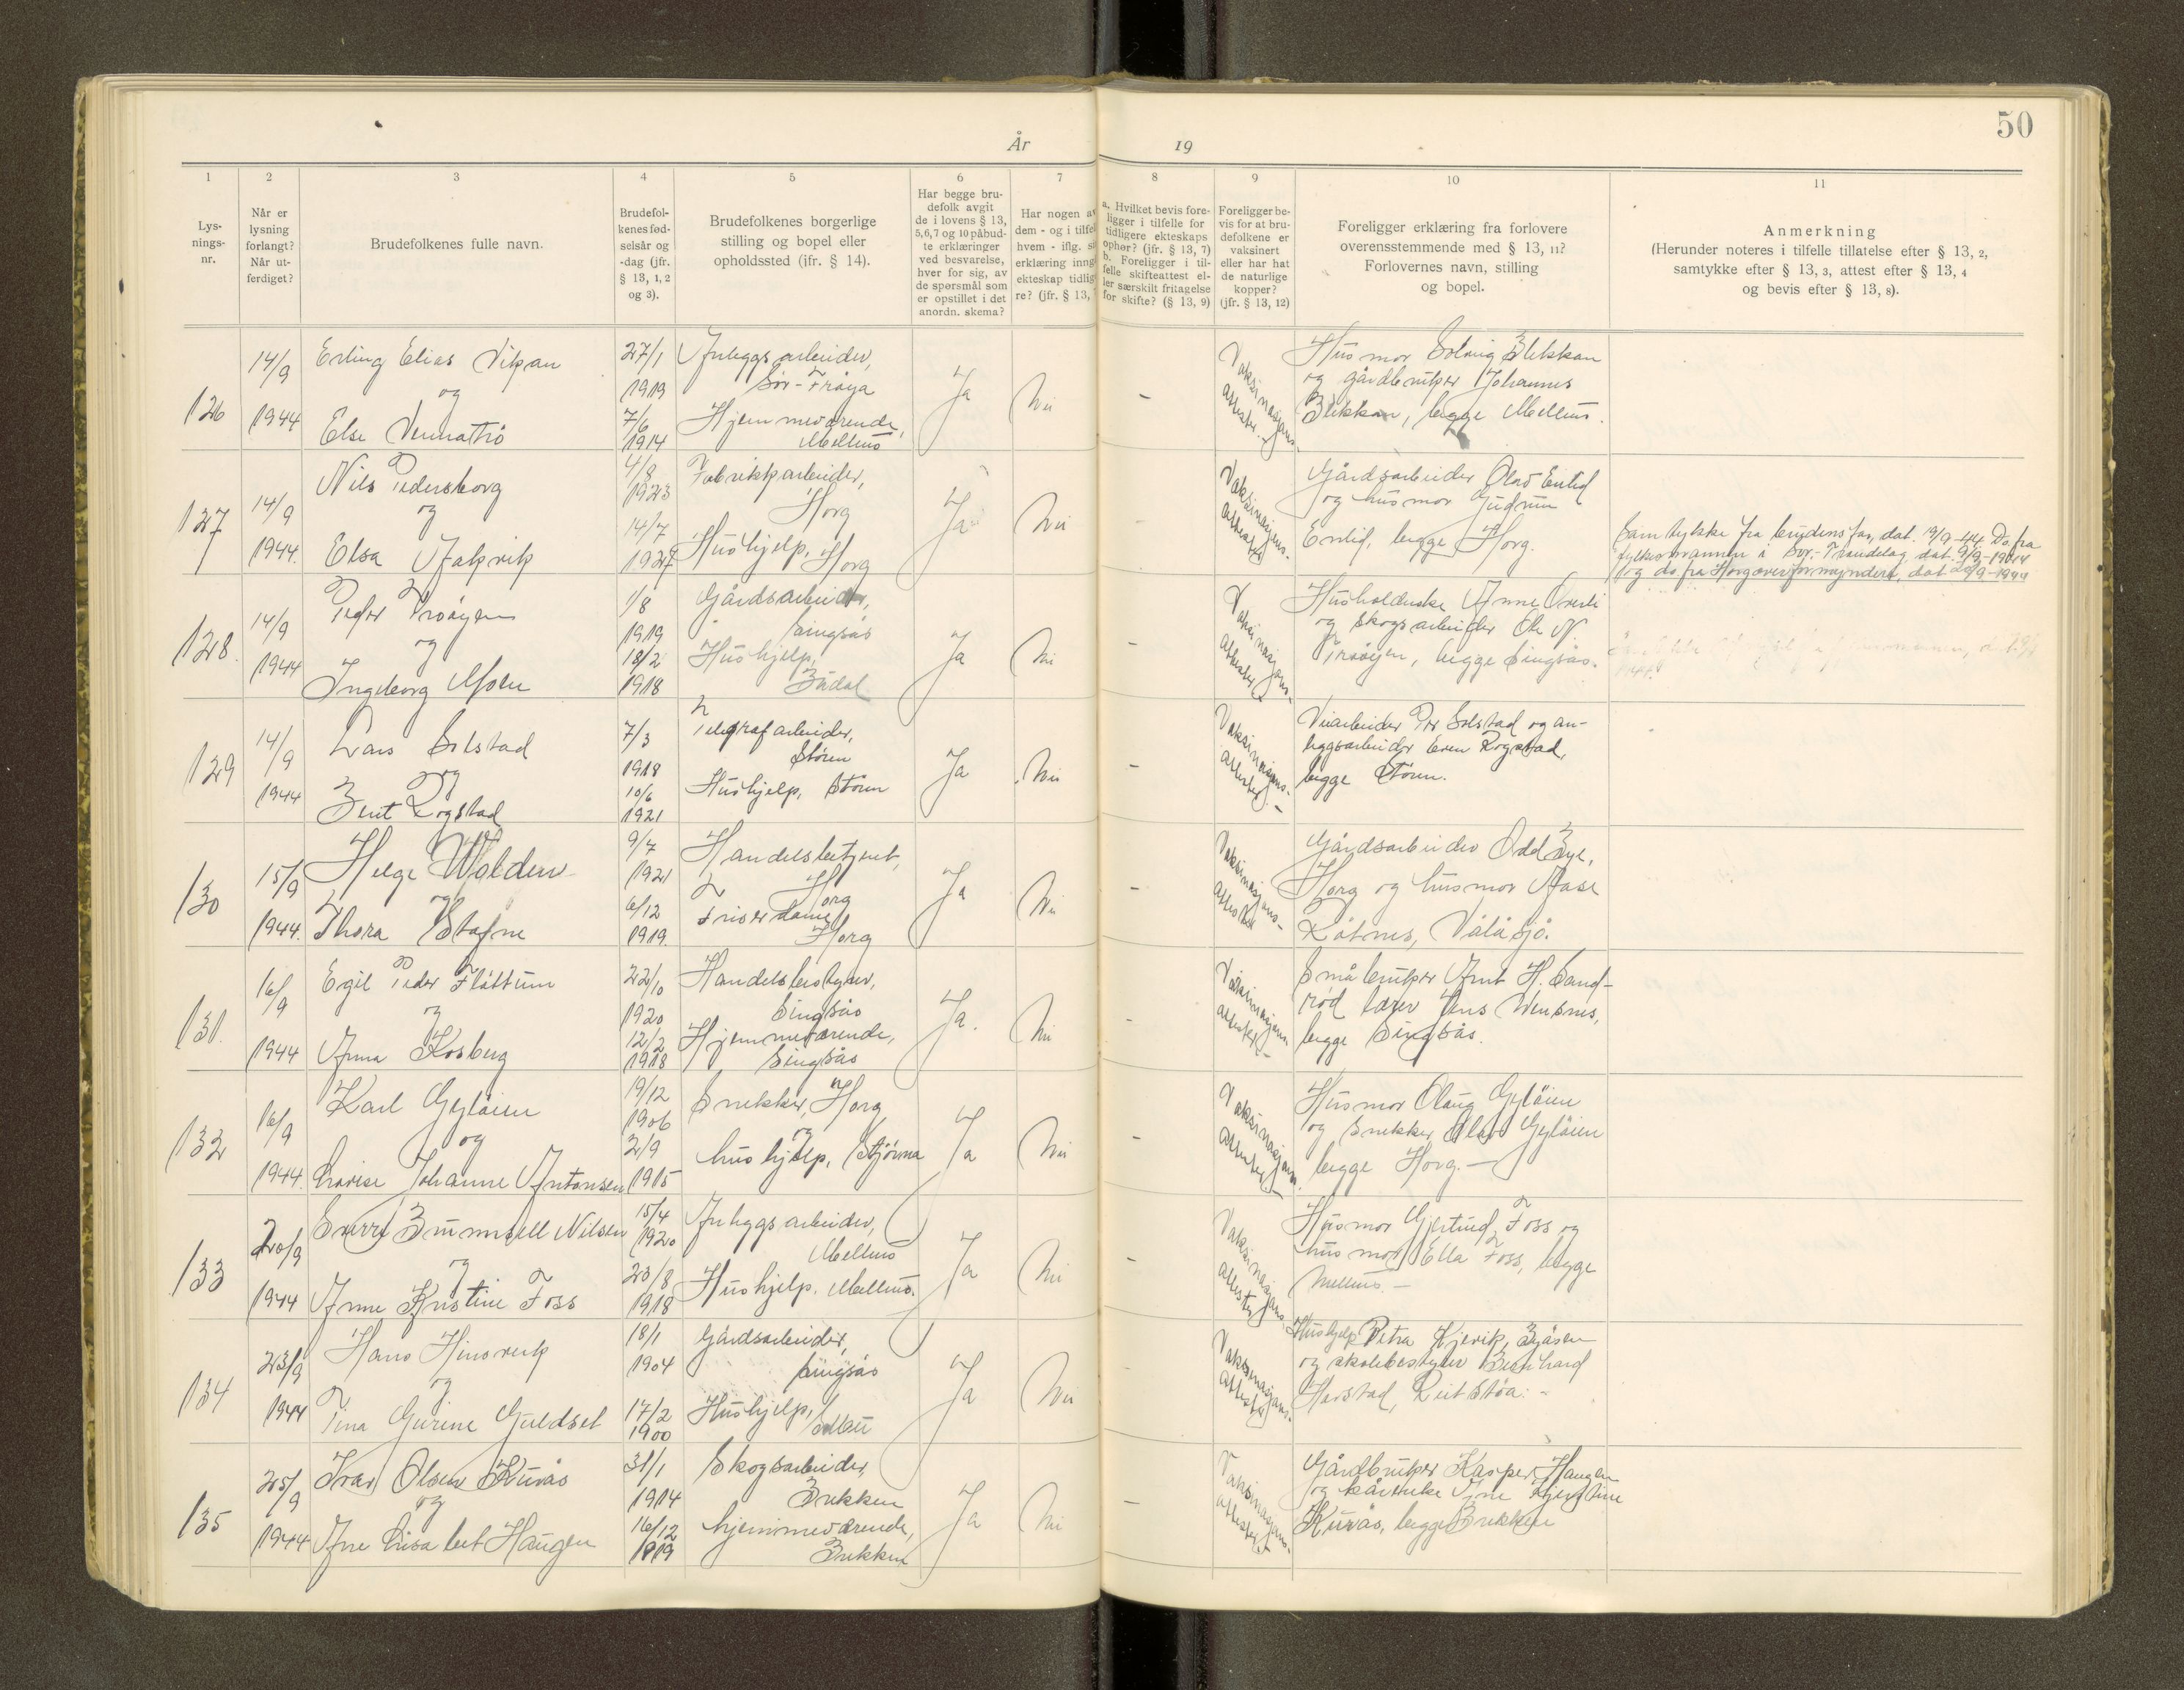 50
År 19
1
2
3
4
5
6
7
8
9
10
11
Lys-
nings-
nr.
Når er
lysning
forlangt?
Når ut-
ferdiget?
Brudefolkenes fulle navn.
Brudefol-
kenes fød-
selsår og
-dag (jfr.
§ 13, 1, 2
og 3).
Brudefolkenes borgerlige
stilling og bopel eller
opholdssted (ifr. § 14).
Har begge bru-
defolk avgit
de i lovens § 13,
5,6,7 og 10 påbud-
te erklæringer
ved besvarelse,
hver for sig, av
de spørsmål som
er opstillet i det
anordn. skema?
Har nogen av
dem - og i tilfel
hvem - iflg. si
erklæring inng
ekteskap tidlig
re? (jfr. § 13,
a. Hvilket bevis fore-
ligger i tilfelle for
tidligere ekteskaps
ophør? (jfr. § 13, 7)
b. Foreligger i til-
felle skifteattest el-
ler særskilt fritagelse
for skifte? (§ 13, 9)
Foreligger be-
vis for at bru-
defolkene er
vaksinert
eller har hat
de naturlige
kopper?
(jfr. § 13, 12)
Foreligger erklæring fra forlovere
overensstemmende med § 13, 11?
Forlovernes navn, stilling
og bopel.
Anmerkning
(Herunder noteres i tilfelle tillatelse efter § 13, 2,
samtykke efter § 13, 3, attest efter § 13, 4
og bevis efter § 13, 8).
126
14/9
1944
Erling Elias Vikan
og
Else Vennatrö
27/1
1919
7/6
1914
Anleggsarbeider,
Sör-Fröya
Hjemmeværende,
Melhus
Ja
Nei
-
Vaksinasjons-
attester.-
Husmor Solveig Blekkan
og gårdbruker Johannes
Blekkan, begge Melhus.
127
14/9
1944.
Nils Pedersborg
og
Elsa Aakvik
4/8
1923
14/7
1927
Fabrikkarbeider,
Horg
Hushjelp, Horg
Ja
Nei
Vaksinasjons-
attester
Gårdsarbeider Olav Enlid
og husmor Gudrun
Enlid, begge Horg.
Samtykke fra brudens far, dat. 19/9-44. Do. fra
fylkesmannen i Sör-Tröndelag, dat. 9/9-1944
og do. fra Horg overformynderi, dat.
128.
14/9
1944
Peder Troöyen
og
Ingeborg Moen
1/8
1919
18/2
1918
Gårdsarbeider,
Singsås
Hushjelp,
Budal
Ja
Nei
-
Vaksinasjons-
attester
Husholderske Anne
og skogsarbeider Ole N.
Troöyen, begge Singsås.
129
14/9
1944
Lars Solstad
og
Berit Rogstad
7/3
1918
10/6
1921
Telegrafarbeider,
Stören
Hushjelp, Stören
Ja
Nei
-
Vaksinasjons-
attester.-
Veiarbeider Per Solstad og an-
leggsarbeider Even Rogstad,
begge Stören.
130
15/9
1944.
Helge Wolden
og
Thora Stafne
9/7
1921
6/12
1919.
Handelsbetjent,
Horg
Friserdame,
Horg
Ja
Nei
-
Vaksinasjons-
attester
Gårdsarbeider Odd Bye,
Horg og husmor Aase
Kåtnes, Vålåsjö.
131.
16/9
1944
Egil Peder Fløttum
og
Anna Kosberg
22/10
1920
12/2
1918
Handelsbestyrer,
Singsås
Hjemmeværende,
Singsås
Ja.
Nei
-
Vaksinasjons-
attester.-
Småbruker Arnt H. Sand-
rød lærer Jens
begge Singsås.
132
16/9
1944.
Karl Gylöien
og
Lovise Johanne Antonsen
19/12
1906
2/9
1915
Snekker, Horg
og
hushjelp, Stjörna
Ja
Nei
-
Vaksinasjons-
attester.-
Husmor Olaug Gylöien
og snekker Olav Gylöien
begge Horg.-
133
20/9
1944
Sverre Nilsen
og
Anne Kristine Foss
15/4
1920
23/8
1918
Anleggsarbeider,
Melhus
Hushjelp. Melhus.
Ja
Nei
-
Vaksinasjons-
attester
Husmor Gjertrud Foss og
husmor Ella Foss, begge
Melhus.-
134
23/9
1944
Hans Hinsverk
og
Tina Gurine Guldset
18/1
1904
17/2
1900
Gårdsarbeider,
Singsås
Hushjelp,
Selbu
Ja
Nei
-
Vaksinasjons-
attester
Hushjelp Petra Kjervik, Bjåsen
og skolebestyrer Bernhard
Harstad, Reitstöa.-
135
25/9
1944
Ivar Olsen Kurås
og
Ane Lisabet Haugen
31/1
1914
16/12
1919
Skogsarbeider,
Brekken
hjemmeværende,
Brekken
Ja
Nei
-
Vaksinasjons-
attester.-
Gårdbruker Kasper Haugen
og kårenke Ane Kjerstine
Kurås, begge Brekken